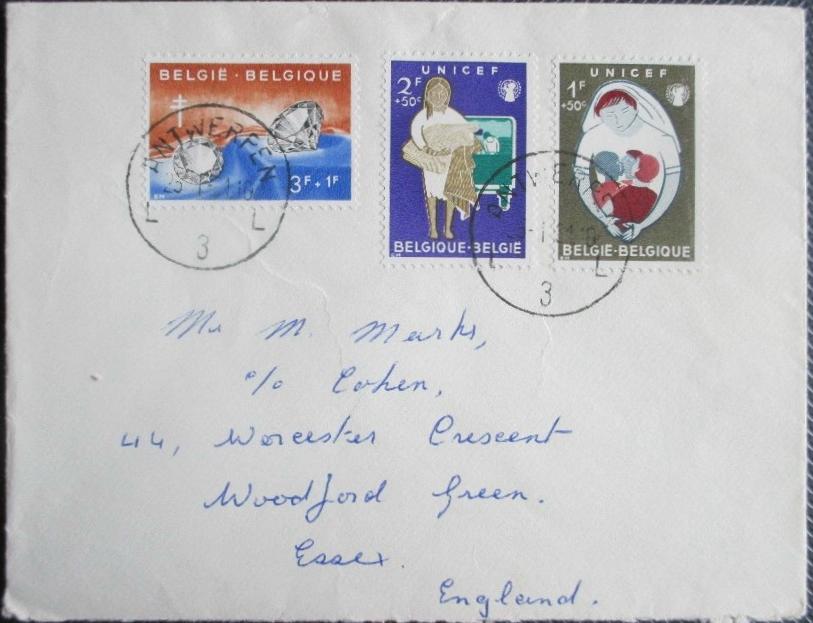 BELGIË · BELGIQUE
3F + 1F
UNICEF
2F
+50c
BELGIQUE-BELGIË
UNICEF
1F
+50c
BELGIË-BELGIQUE
ANTWERPEN
L L
3
ANTWERPEN
L L
3
Mr M. Marks,
c/o Cohen,
44, Worcester Crescent
Woodford Green.
Essex.
England.